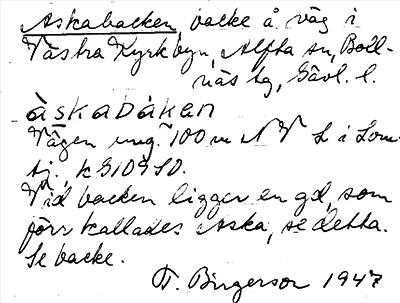 Askabacken, backe å väg i
Västra Kyrkbyn, Alfta sn, Boll-
näs tg, Gävl. l.
àskabàkən
Vägen ung. 100 m NV L i Lom-
tj., k G10950.
Vid backen ligger en gd, som
förr kallades Aska, se detta.
Se backe.
F. Birgerson 1947